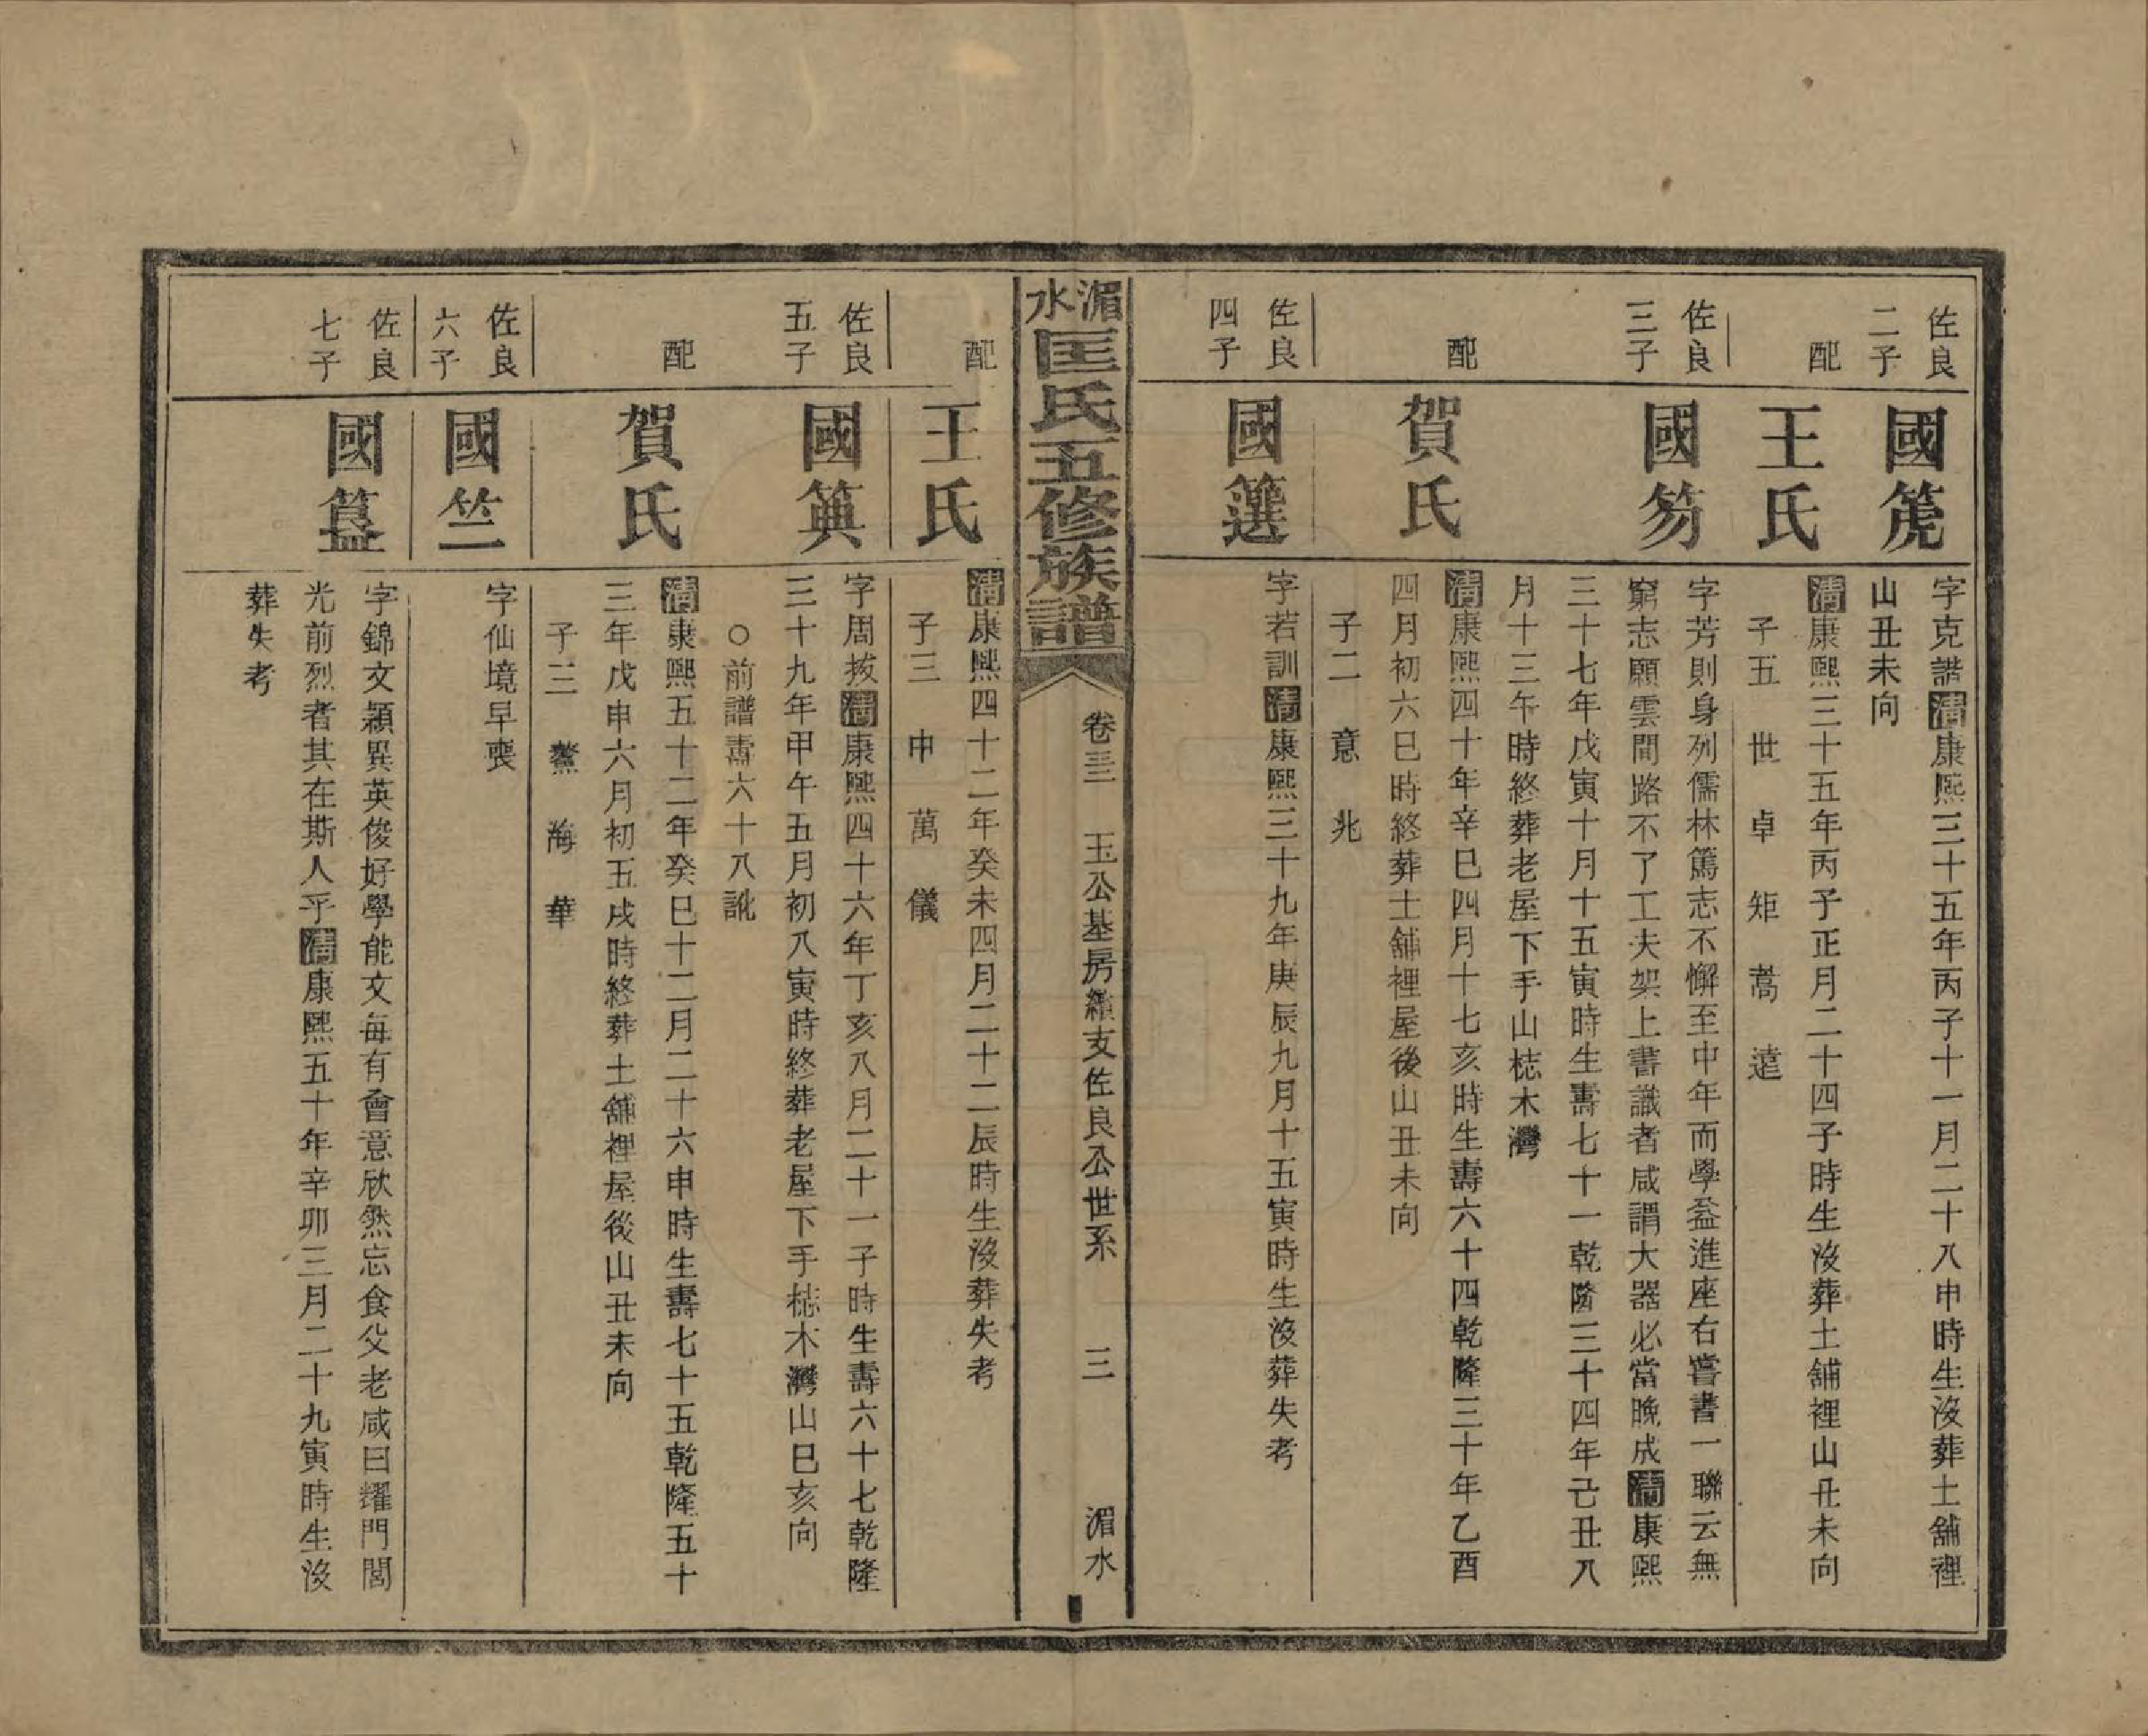 佐良
二子
國箎
字克諧清康熙三十五年丙子十一月二十八申時生沒葬土舖裡
山丑未向
配
王氏
清康熙三十五年丙子正月二十四子時生沒葬土舖裡山丑未向
子五 世 卓 矩 蒿 遠
佐良
三子
國笏
字芳則身列儒林篤志不懈至中年而學益進座右嘗書一聯云無
窮志願雲間路不了工夫架上書識者咸謂大器必當晚成清康熙
三十七年戊寅十月十五寅時生壽七十一乾隆三十四年己丑八
月十三午時終葬老屋下手山梽木灣
配
賀氏
清康熙四十年辛巳四月十七亥時生壽六十四乾隆三十年乙酉
四月初六巳時終葬土舖裡屋後山丑未向
子二 意 兆
佐良
四子
國籑
字若訓清康熙三十九年庚辰九月十五寅時生沒葬失考
湄水
匡氏五修族譜
卷三三 玉公基房纘支佐良公世系 三 湄水
配
王氏
清康熙四十二年癸未四月二十二辰時生沒葬失考
子三 申 萬 儀
佐良
五子
國箕
字周拔清康熙四十六年丁亥八月二十一子時生壽六十七乾隆
三十九年甲午五月初八寅時終葬老屋下手梽木灣山巳亥向
○前譜壽六十八訛
配
賀氏
清康熙五十二年癸巳十二月二十六申時生壽七十五乾隆五十
三年戊申六月初五戌時終葬土舖裡屋後山丑未向
子三 鰲 海 華
佐良
六子
國竺
字仙境早喪
佐良
七子
國簋
字錦文穎異英俊好學能文每有會意欣然忘食父老咸曰耀門閭
光前烈者其在斯人乎清康熙五十年辛卯三月二十九寅時生沒
葬失考